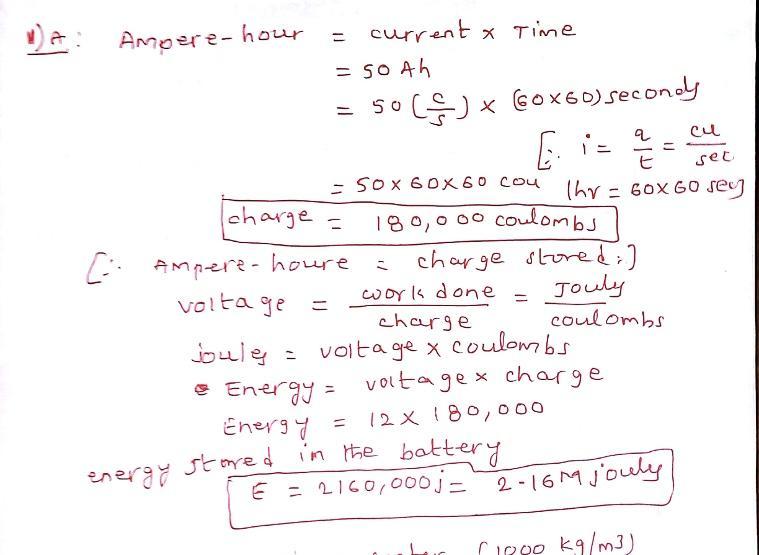 1) A: Ampere-hour = current x Time
= 50 Ah
= 50 (c/s) x (60x60) seconds
[∵ i = q/t = cu/sec
= 50 x 60x60 cou 1hr = 60x60 sec]
charge = 180,000 coulombs
[∵ Ampere-houre = charge stored.]
voltage = work done/charge = Jouly/coulombs
joules = voltage x coulombs
Energy = voltage x charge
Energy = 12 x 180,000
energy stored in the battery
E = 2160,000j = 2.16M jouly
(1000 kg/m3)